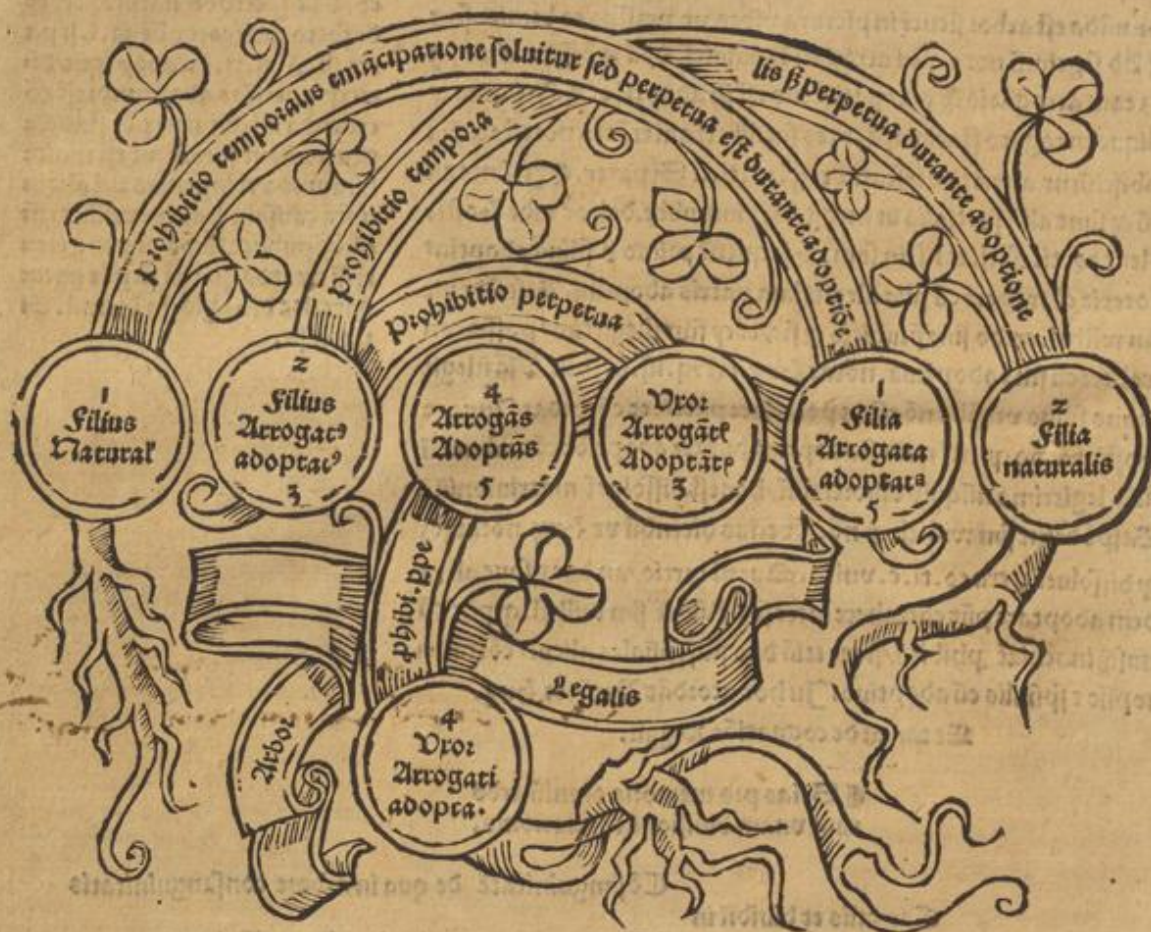 Prohibitio temporalis emācipatione soluitur sed perpetua est durante adoptiōe
Prohibitio tempora
lis ꝓ perpetua durante adoptione
Prohibitio perpetua
1
Filius
Naturaľ
2
Filius
Arrogatꝰ
adoptatꝰ
3
4
Arrogās
Adoptās
5
Vxor
Arrogātꝭ
Adoptātꝭ
3
1
Filia
Arrogata
adoptatᵃ
5
2
Filia
naturalis
ꝓhibi. ꝑpe
Arbor
Legalis
4
Vxor
Arrogati
adopta.